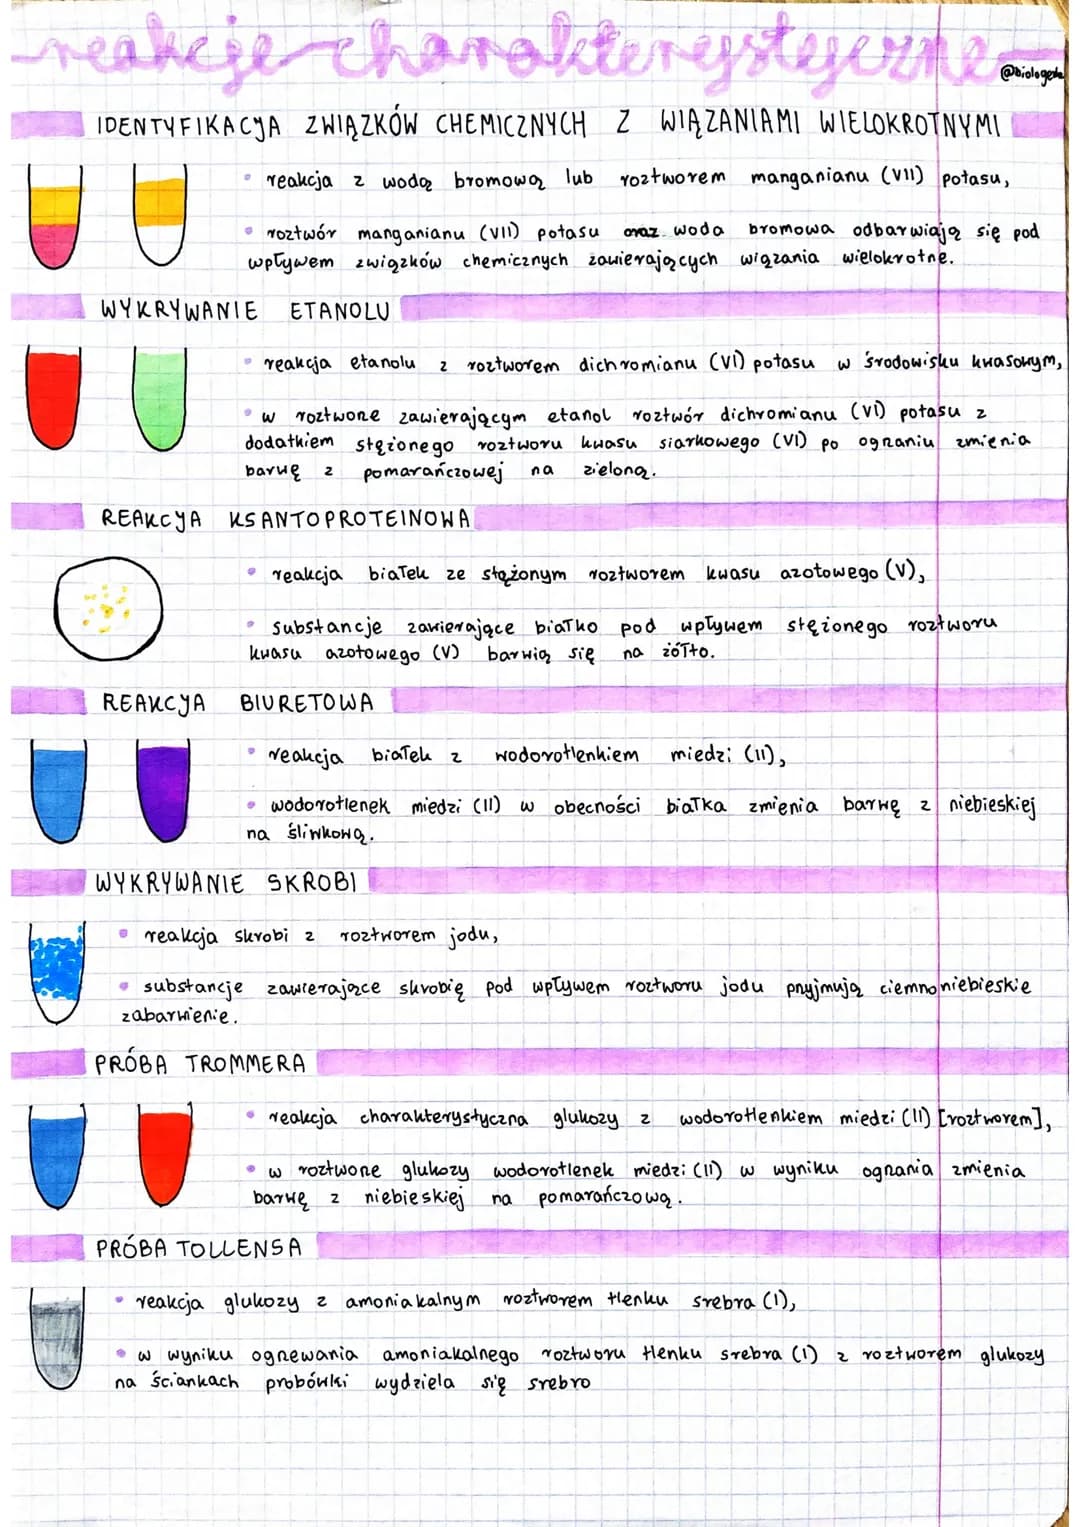 reakcje charakterystyczne
@biologerka
IDENTYFIKACJA ZWIĄZKÓW CHEMICZNYCH Z WIĄZANIAMI WIELOKROTNYMI
• reakcja z wodą bromową lub roztworem manganianu (VII) potasu,
• roztwór manganianu (VII) potasu oraz woda bromowa odbarwiają się pod
wpływem związków chemicznych zawierających wiązania wielokrotne.
WYKRYWANIE ETANOLU
• reakcja etanolu z roztworem dichromianu (VI) potasu w środowisku kwasowym,
• w roztworze zawierającym etanol roztwór dichromianu (VI) potasu z
dodatkiem stężonego roztworu kwasu siarkowego (VI) po ogrzaniu zmienia
barwę z pomarańczowej na zieloną.
REAKCJA KSANTOPROTEINOWA
• reakcja białek ze stężonym roztworem kwasu azotowego (V),
• substancje zawierające białko pod wpływem stężonego roztworu
kwasu azotowego (V) barwią się na żółto.
REAKCJA BIURETOWA
• reakcja białek z wodorotlenkiem miedzi (II),
• wodorotlenek miedzi (II) w obecności białka zmienia barwę z niebieskiej
na śliwkową.
WYKRYWANIE SKROBI
• reakcja skrobi z roztworem jodu,
• substancje zawierające skrobię pod wpływem roztworu jodu przyjmują ciemnoniebieskie
zabarwienie.
PRÓBA TROMMERA
• reakcja charakterystyczna glukozy z wodorotlenkiem miedzi (II) [roztworem],
• w roztworze glukozy wodorotlenek miedzi (II) w wyniku ogrzania zmienia
barwę z niebieskiej na pomarańczową.
PRÓBA TOLLENSA
• reakcja glukozy z amoniakalnym roztworem tlenku srebra (I),
• w wyniku ogrzewania amoniakalnego roztworu tlenku srebra (I) z roztworem glukozy
na ściankach probówki wydziela się srebro